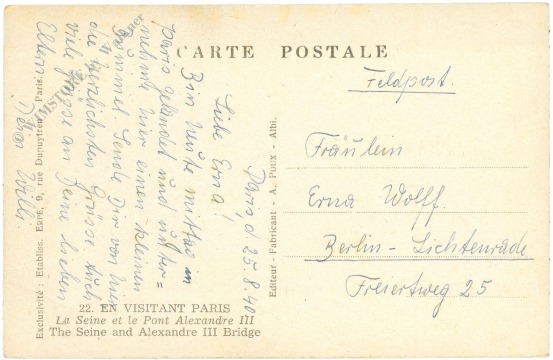 CARTE POSTALE
Feldpost.
Fräulein
Erna Wolff.
Berlin - Lichtenrade
Freiertweg 25
Paris d 25.8.40
Liebe Erna!
Bin heute mittag in
Paris gelandet und unter=
nehme hier einen kleinen
Bummel. Sende Dir von hier
die herzlichsten Grüsse. Auch
viele Grüsse an Deine lieben
Eltern.
Dein Willi.
22. EN VISITANT PARIS
La Seine et le Pont Alexandre III
The Seine and Alexandre III Bridge
Editeur - Fabricant - A. Poux - Albi.
Exclusivité : Etabliss. ERPÉ, 9, rue Dupuytren, Paris.